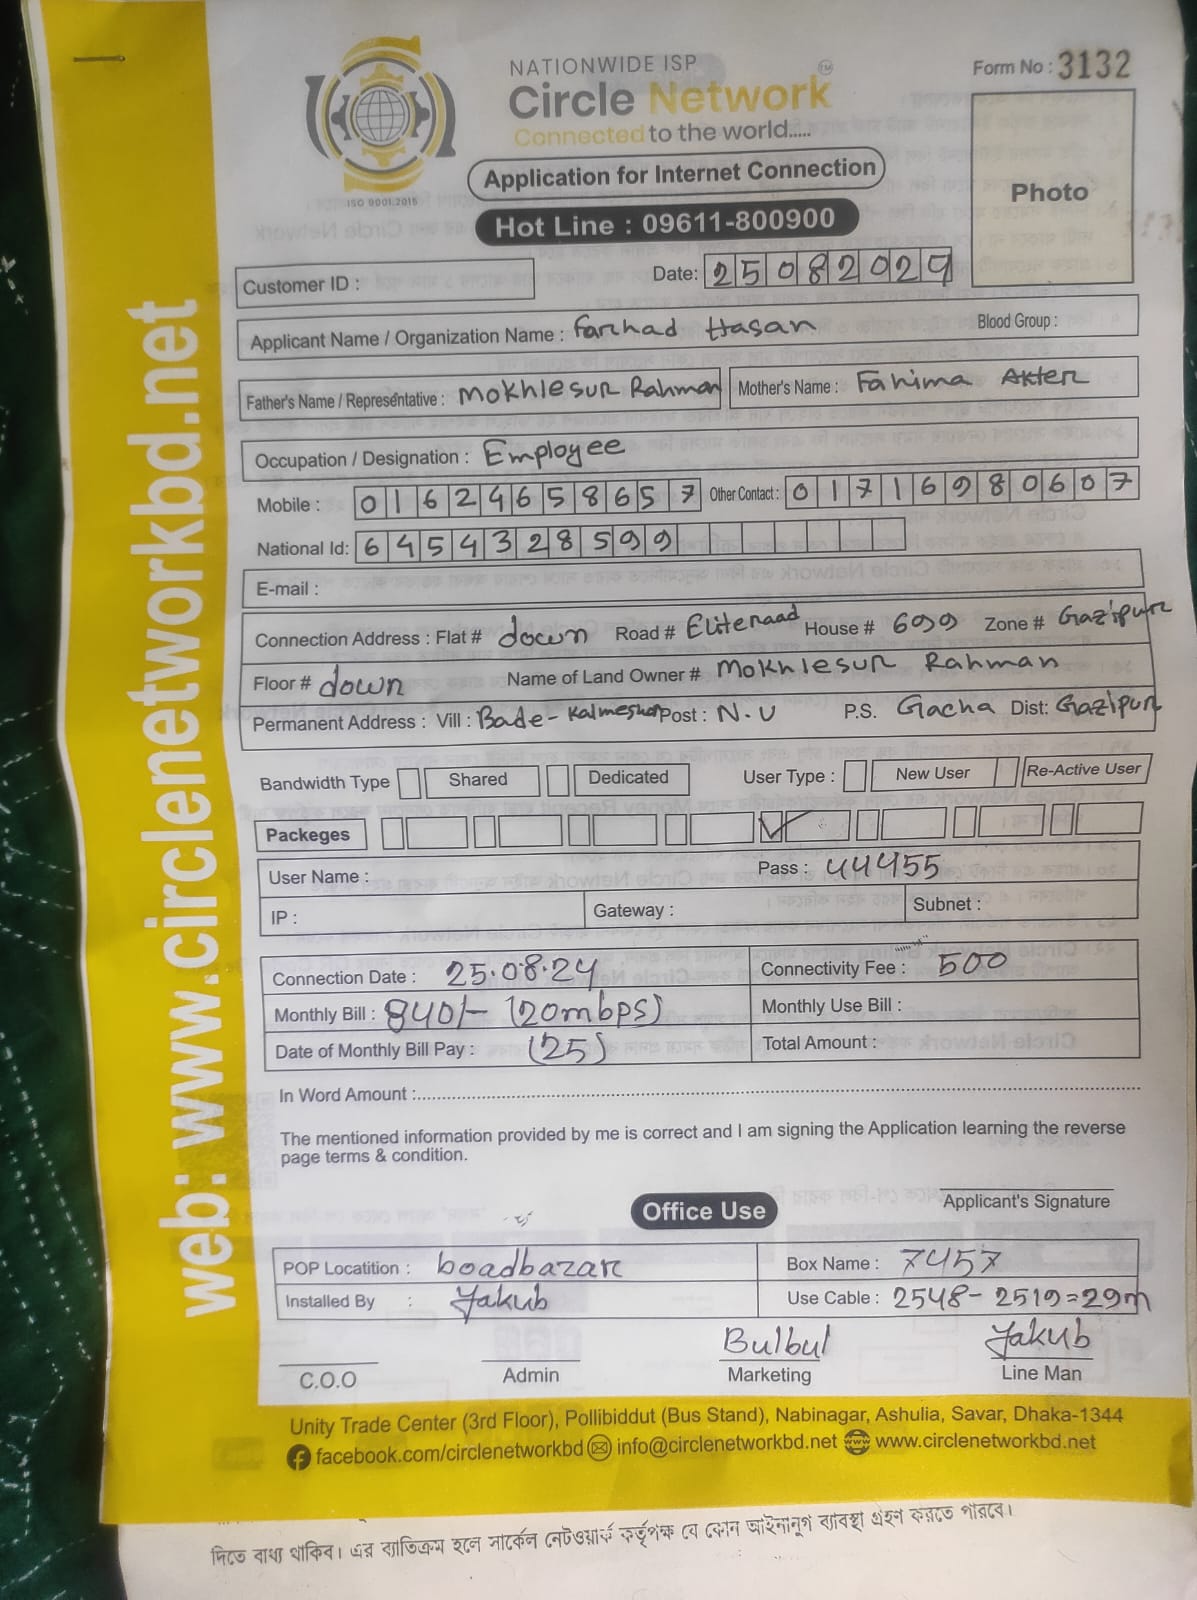 NATIONWIDE ISP
Circle Network TM
Connected to the world.....
ISO 9001:2015
Form No : 3132
Application for Internet Connection
Photo
Hot Line : 09611-800900
Customer ID :
Date: 25082024
Applicant Name / Organization Name : Farhad Hasan Blood Group :
Father's Name / Representative : Mokhlesur Rahman Mother's Name : Fahima Akter
Occupation / Designation : Employee
Mobile : 01624658657 Other Contact : 01716980607
National Id: 6454328599
E-mail :
Connection Address : Flat # down Road # Eliteraad House # 699 Zone # Gazipur
Floor # down Name of Land Owner # Mokhlesur Rahman
Permanent Address : Vill : Bade-Kalmeshor Post : N.U P.S. Gacha Dist: Gazipur
Bandwidth Type Shared Dedicated User Type : New User Re-Active User
Packeges
User Name : Pass : 44455
IP : Gateway : Subnet :
Connection Date : 25.08.24 Connectivity Fee : 500
Monthly Bill : 840/- (20mbps) Monthly Use Bill :
Date of Monthly Bill Pay : (25) Total Amount :
In Word Amount :
The mentioned information provided by me is correct and I am signing the Application learning the reverse
page terms & condition.
Applicant's Signature
Office Use
POP Locatition : boadbazar Box Name : 7457
Installed By : Yakub Use Cable : 2548-2519=29m
Bulbul Yakub
C.O.O Admin Marketing Line Man
Unity Trade Center (3rd Floor), Pollibiddut (Bus Stand), Nabinagar, Ashulia, Savar, Dhaka-1344
facebook.com/circlenetworkbd info@circlenetworkbd.net www.circlenetworkbd.net
web: www.circlenetworkbd.net
দিতে বাধ্য থাকিব। এর ব্যাতিক্রম হলে সার্কেল নেটওয়ার্ক কর্তৃপক্ষ যে কোন আইনানুগ ব্যাবস্থা গ্রহণ করতে পারবে।